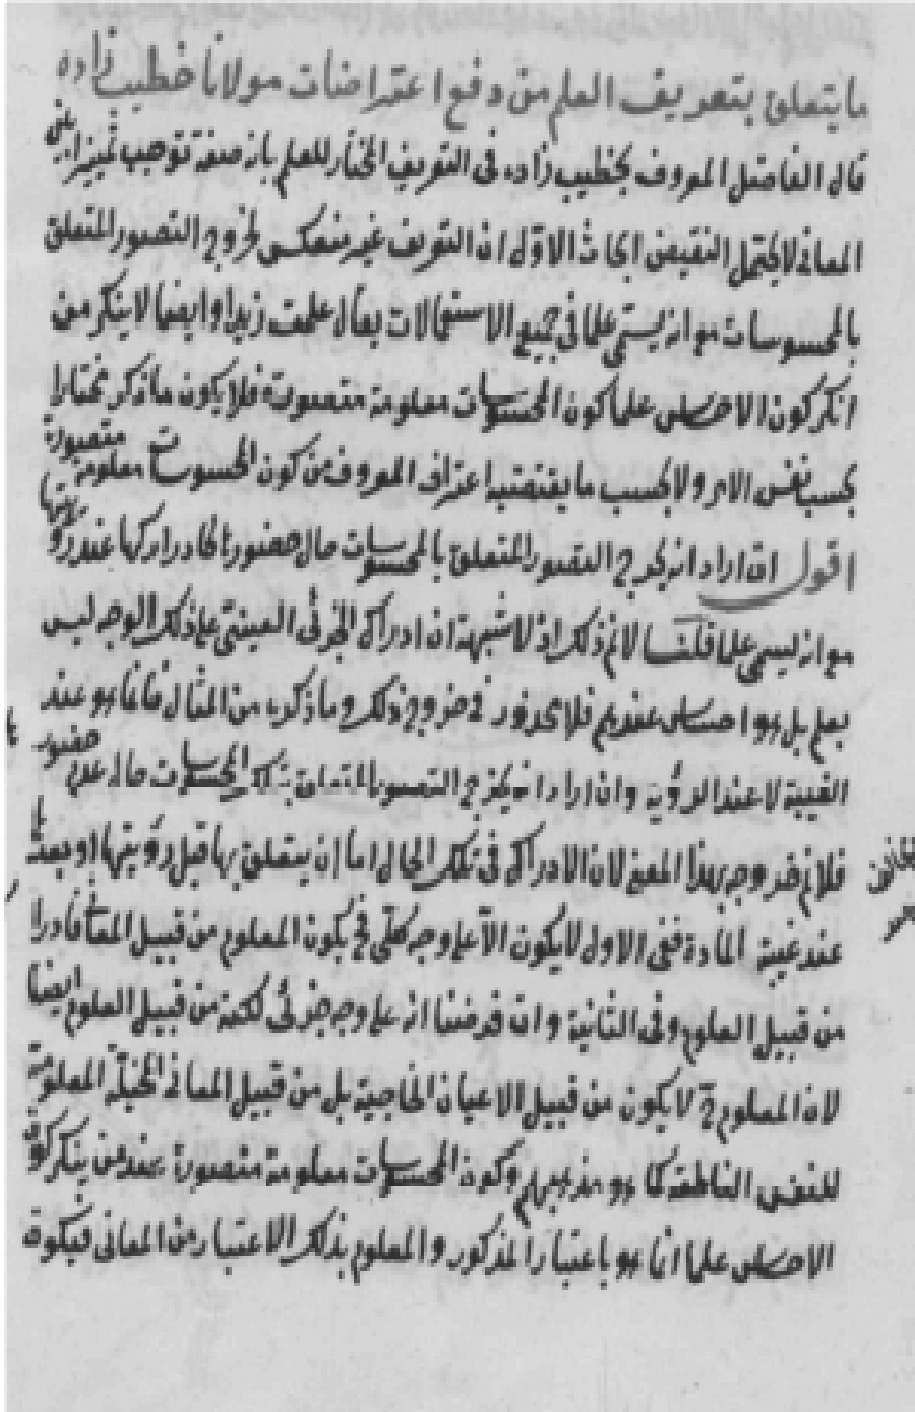 ما يتعلق بتعريف العلم من دفع اعتراضات مولانا خطيب زاده
قال الفاضل المعروف بخطيب زاده في التعريف المختار للعلم بانه صفة توجب تمييزا بين
المعاني لا يحتمل النقيض ابحاث الاول ان التعريف غير منعكس لخروج التصور المتعلق
بالمحسوسات مع انه يسمى علما في جميع الاستعمالات يقال علمت زيدا وايضا لا ينكر من
انكر كون الاحساس علما كون المحسوسات معلومة متصورة فلا يكون ما ذكر مختارا
بحسب نفس الامر ولا بحسب ما يقتضيه اعتراف المعروف من كون المحسوسات معلومة متصورة
اقول ان اراد انه يخرج التصور المتعلق بالمحسوسات حال حضورها كادراكها عند رؤيتها
مع انه يسمى علما قلنا لانم ذلك اذ لا شبهة ان ادراك الجزئي العيني على ذلك الوجه ليس
بعلم بل هو احساس عندهم فلا محذور في خروج ذلك وما ذكره من المثال فانما هو عند
الغيبة لا عند الرؤية وان اراد انه يخرج التصور المتعلق بتلك المحسوسات حال عدم حضور
فلانم خروجه بهذا المعنى لان الادراك في تلك الحال اما ان يتعلق بها قبل رؤيتها او بعدها
عند غيبة المادة ففي الاول لا يكون الا على وجه كلي فح يكون المعلوم من قبيل المعاني فادرا
من قبيل العلوم وفي الثانية وان فرضنا انه على وجه جزئي لكنه من قبيل العلوم ايضا
لان المعلوم ح لا يكون من قبيل الاعيان الخارجية بل من قبيل المعاني المخيلة المعلومة
للنفس الناطقة كما هو مذهبهم وكون المحسوسات معلومة متصورة عند من ينكر كون
الاحساس علما انما هو باعتبار المذكور والمعلوم بذلك الاعتبار من المعاني فيكون